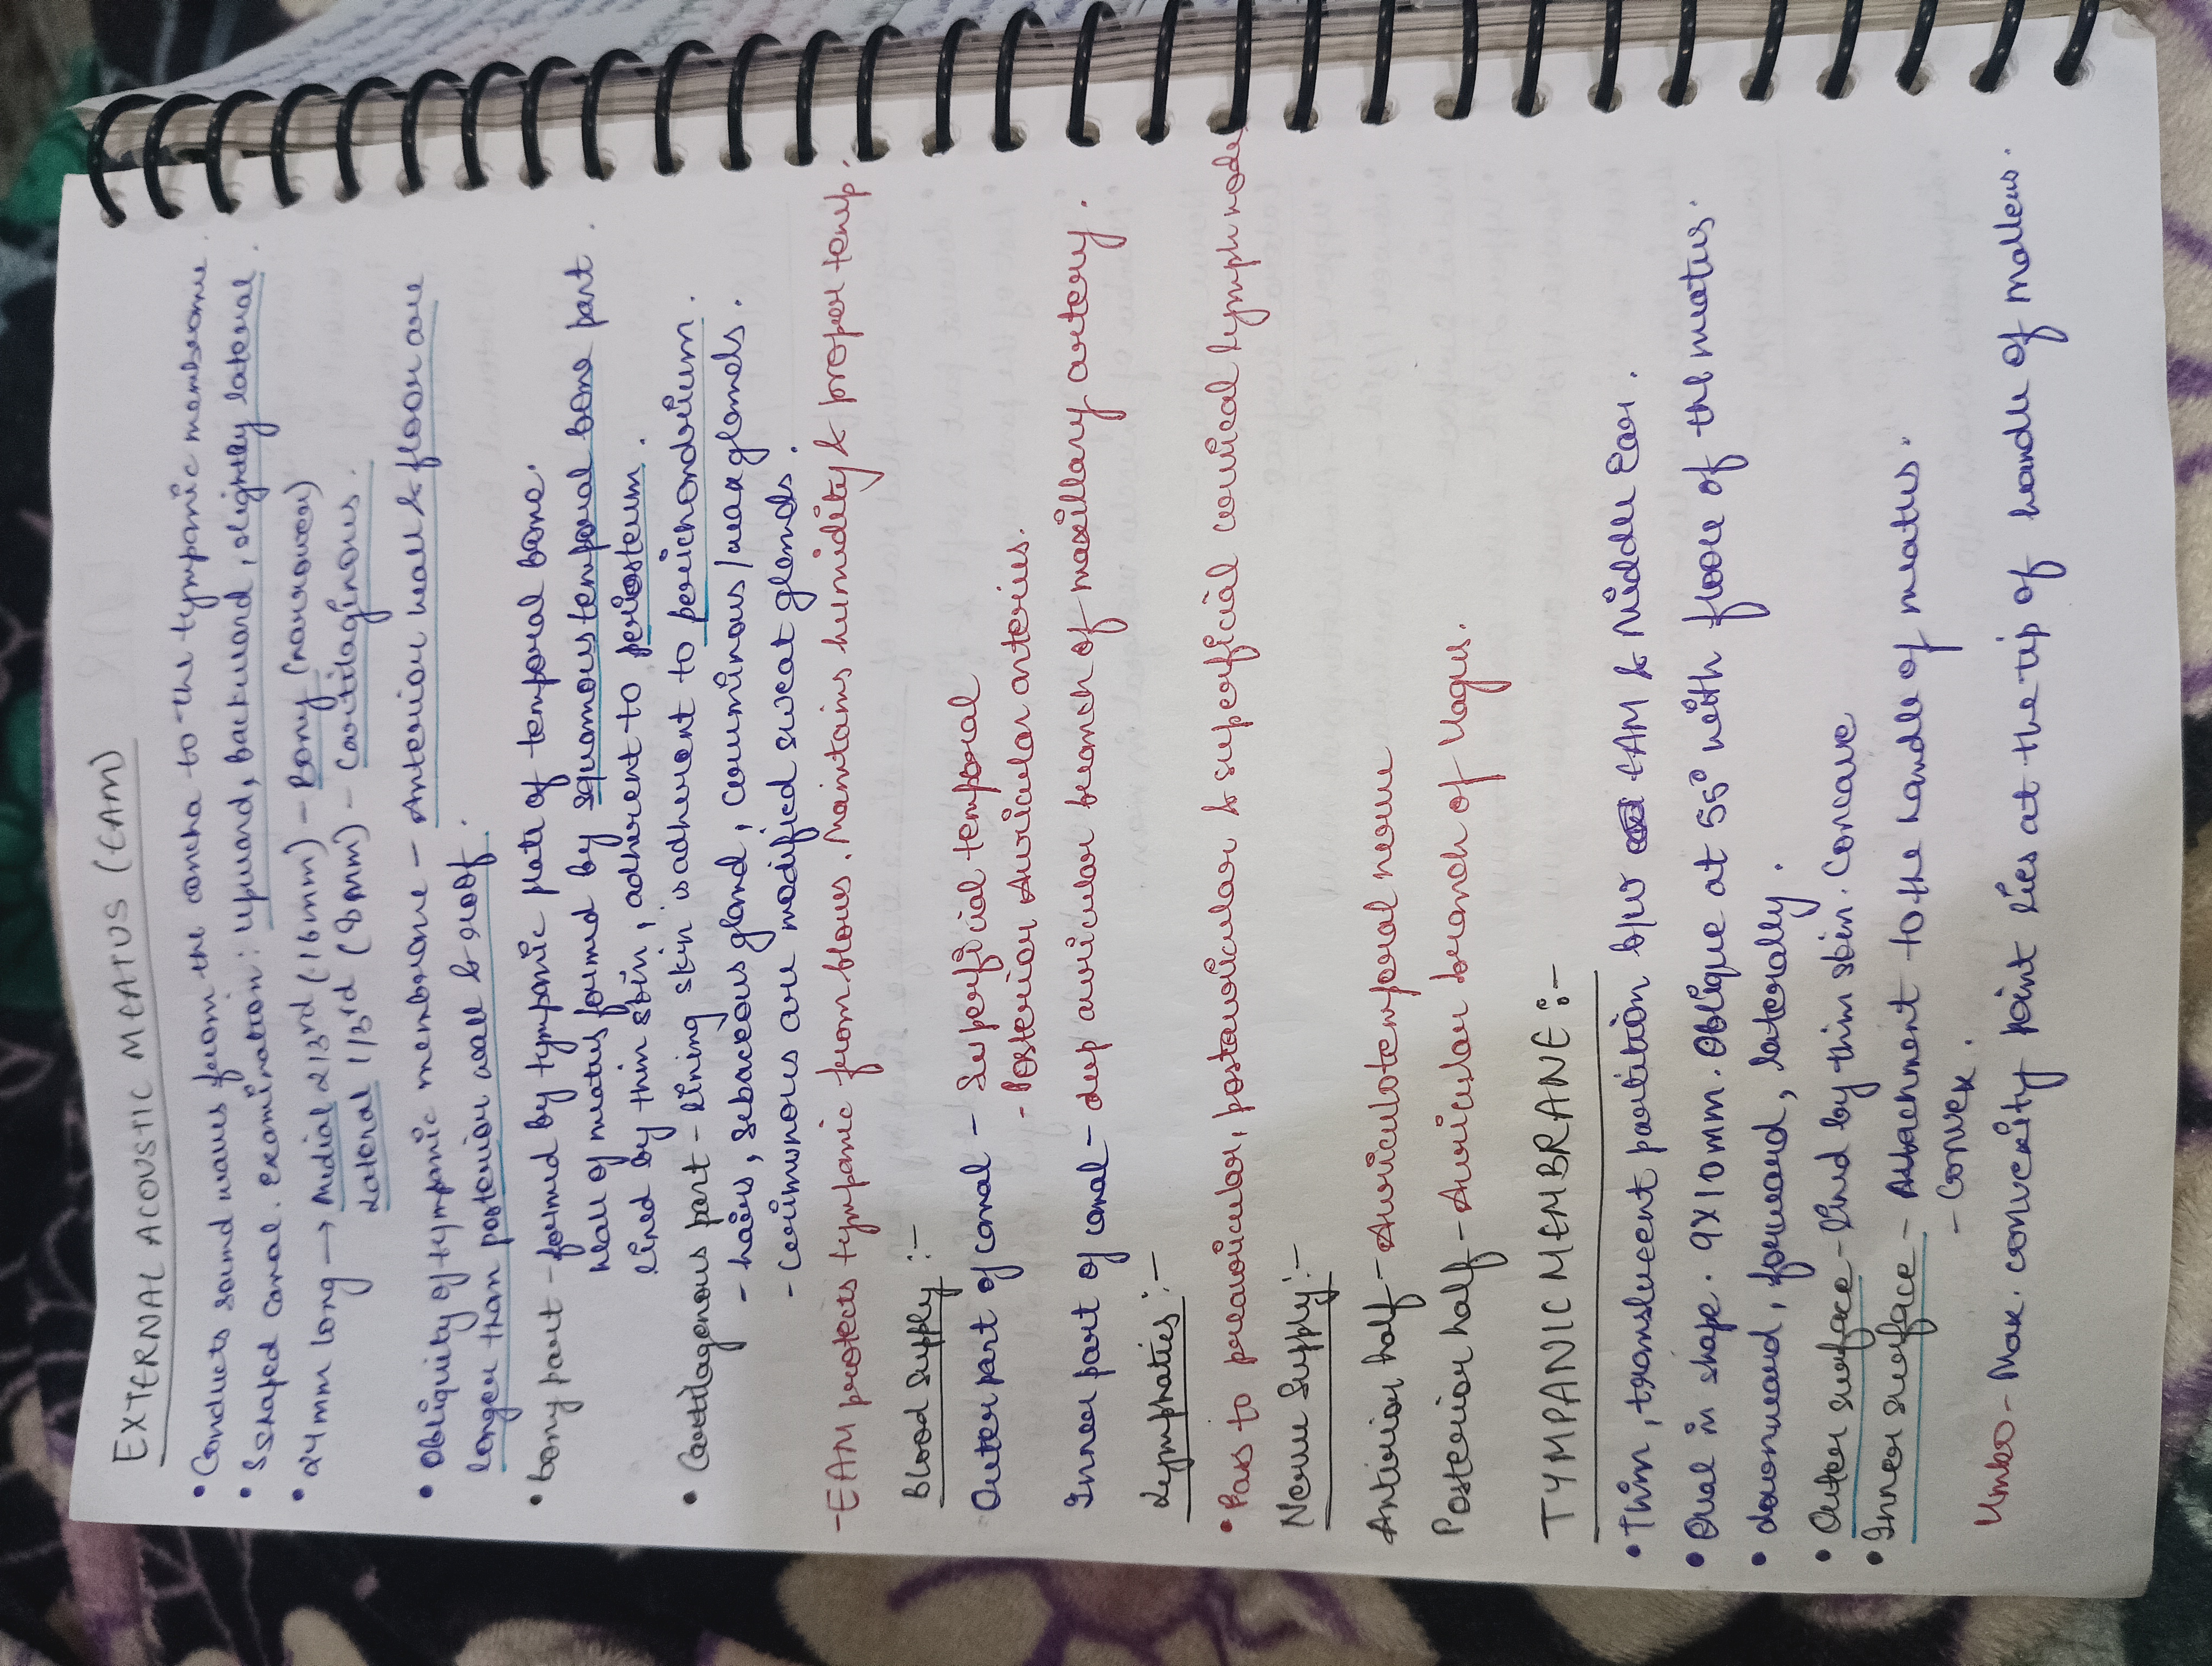 EXTERNAL ACOUSTIC MEATUS (EAM)
• Conducts sound waves from the concha to the tympanic membrane.
• S shaped canal. Examination: upward, backward, slightly lateral.
• 24mm long → Medial 2/3rd (16mm) - Bony (narrower)
Lateral 1/3rd (8mm) - Cartilaginous.
• Obliquity of tympanic membrane - Anterior wall & floor are
longer than posterior wall & roof.
• bony part - formed by tympanic plate of temporal bone.
Wall of meatus formed by squamous temporal bone part.
lined by thin skin, adherent to periosteum.
• Cartilagenous part - lining skin is adherent to perichondrium.
- hairs, sebaceous gland, ceruminous/wax glands.
- Cerumonous are modified sweat glands.
- EAM protects tympanic from blows. Maintains humidity & proper temp.
Blood supply :-
Outer part of canal - Superficial temporal
- Posterior Auricular arteries.
Inner part of canal - deep auricular branch of maxillary artery.
Lymphatics :-
• Pass to preauricular, postauricular & superficial cervical lymph nodes
Nerve Supply :-
Anterior half - Auriculotemporal nerve
Posterior half - Auricular branch of Vagus.
TYMPANIC MEMBRANE :-
• Thin, translucent partition b/w EAM & Middle Ear.
• Oval in shape. 9x10mm. Oblique at 55° with floor of the meatus.
• downward, forward, laterally.
• Outer surface - lined by thin skin. Concave
• Inner surface - Attachment to the handle of meatus.
- Convex.
Umbo - Max. convexity point lies at the tip of handle of malleus.